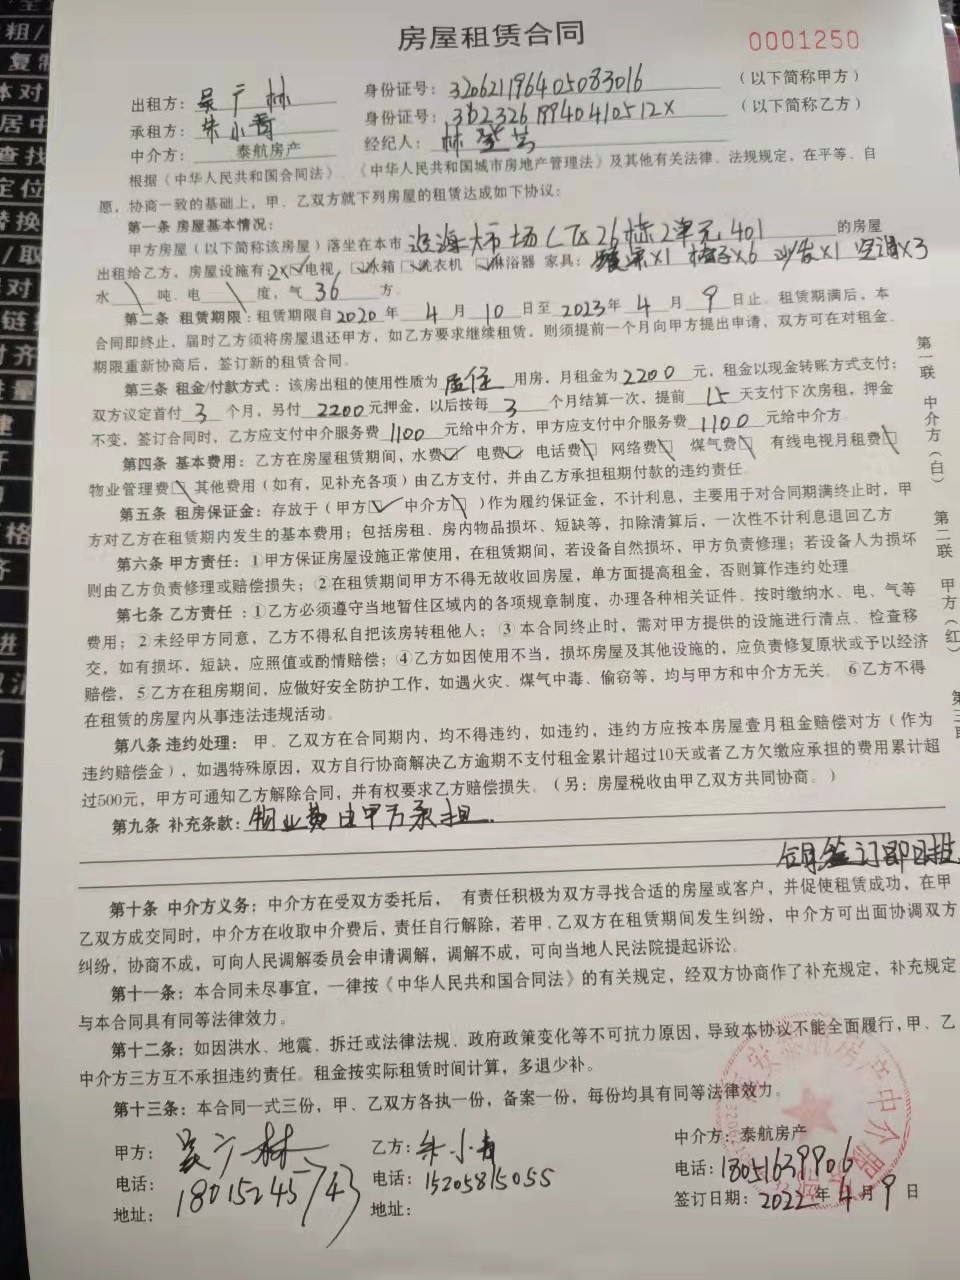 房屋租赁合同
0001250
出租方：吴广林 身份证号：320621196405083016 （以下简称甲方）
承租方：朱小青 身份证号：36232619940410512X （以下简称乙方）
中介方：泰航房产 经纪人：林
根据《中华人民共和国合同法》、《中华人民共和国城市房地产管理法》及其他有关法律、法规规定，在平等、自
愿，协商一致的基础上，甲、乙双方就下列房屋的租赁达成如下协议：
第一条 房屋基本情况：
甲方房屋（以下简称该房屋）落坐在本市 海大市场 26栋2单元401 的房屋
出租给乙方，房屋设施有：2×☑电视，☑冰箱 ☑洗衣机 ☑淋浴器 家具： ×1 椅子×6 沙发×1 空调×3
水\吨．电\度，气36方．
第二条 租赁期限：租赁期限自2020年4月10日至2023年4月9日止．租赁期满后，本
合同即终止，届时乙方须将房屋退还甲方，如乙方要求继续租赁，则须提前一个月向甲方提出申请，双方可在对租金．
期限重新协商后，签订新的租赁合同．
第三条 租金/付款方式：该房出租的使用性质为居住用房，月租金为2200元，租金以现金转账方式支付；
双方议定首付3个月，另付2200元押金，以后按每3个月结算一次，提前15天支付下次房租，押金
不变，签订合同时，乙方应支付中介服务费1100元给中介方，甲方应支付中介服务费1100元给中介方．
第四条 基本费用：乙方在房屋租赁期间，水费☑ 电费☑ 电话费□ 网络费□ 煤气费□ 有线电视月租费□
物业管理费□ 其他费用（如有，见补充各项）由乙方支付，并由乙方承担租期付款的违约责任．
第五条 租房保证金：存放于（甲方☑ 中介方□）作为履约保证金，不计利息，主要用于对合同期满终止时，甲
方对乙方在租赁期内发生的基本费用；包括房租、房内物品损坏、短缺等，扣除清算后，一次性不计利息退回乙方
第六条 甲方责任：①甲方保证房屋设施正常使用，在租赁期间，若设备自然损坏，甲方负责修理；若设备人为损坏
则由乙方负责修理或赔偿损失；②在租赁期间甲方不得无故收回房屋，单方面提高租金，否则算作违约处理
第七条 乙方责任：①乙方必须遵守当地暂住区域内的各项规章制度，办理各种相关证件．按时缴纳水、电、气等
费用；②未经甲方同意，乙方不得私自把该房转租他人；③本合同终止时，需对甲方提供的设施进行清点、检查移
交，如有损坏，短缺，应照值或酌情赔偿；④乙方如因使用不当，损坏房屋及其他设施的，应负责修复原状或予以经济
赔偿，⑤乙方在租房期间，应做好安全防护工作，如遇火灾、煤气中毒、偷窃等，均与甲方和中介方无关．⑥乙方不得
在租赁的房屋内从事违法违规活动．
第八条 违约处理：甲、乙双方在合同期内，均不得违约，如违约，违约方应按本房屋壹月租金赔偿对方（作为
违约赔偿金），如遇特殊原因，双方自行协商解决乙方逾期不支付租金累计超过10天或者乙方欠缴应承担的费用累计超
过500元，甲方可通知乙方解除合同，并有权要求乙方赔偿损失．（另：房屋税收由甲乙双方共同协商．）
第九条 补充条款：物业费由甲方承担．
签订即日
第十条 中介方义务；中介方在受双方委托后， 有责任积极为双方寻找合适的房屋或客户，并促使租赁成功，在甲
乙双方成交同时，中介方在收取中介费后，责任自行解除，若甲、乙双方在租赁期间发生纠纷，中介方可出面协调双方
纠纷，协商不成，可向人民调解委员会申请调解，调解不成，可向当地人民法院提起诉讼．
第十一条：本合同未尽事宜，一律按《中华人民共和国合同法》的有关规定，经双方协商作了补充规定，补充规定
与本合同具有同等法律效力．
第十二条：如因洪水、地震、拆迁或法律法规、政府政策变化等不可抗力原因，导致本协议不能全面履行，甲、乙
中介方三方互不承担违约责任．租金按实际租赁时间计算，多退少补．
第十三条：本合同一式三份，甲、乙双方各执一份，备案一份，每份均具有同等法律效力．
甲方：吴广林 乙方：朱小青 中介方：泰航房产
电话：18015245743 电话：15205815055 电话：18051639906
地址： 地址： 签订日期：2022年4月9日
第一联 中介方（白） 第二联 甲方（红） 第三联
安泰航房产中介服
粗/
复制
体对
居中
查找
定位
替换
/取
对
链
对齐
量
建
格
齐
进